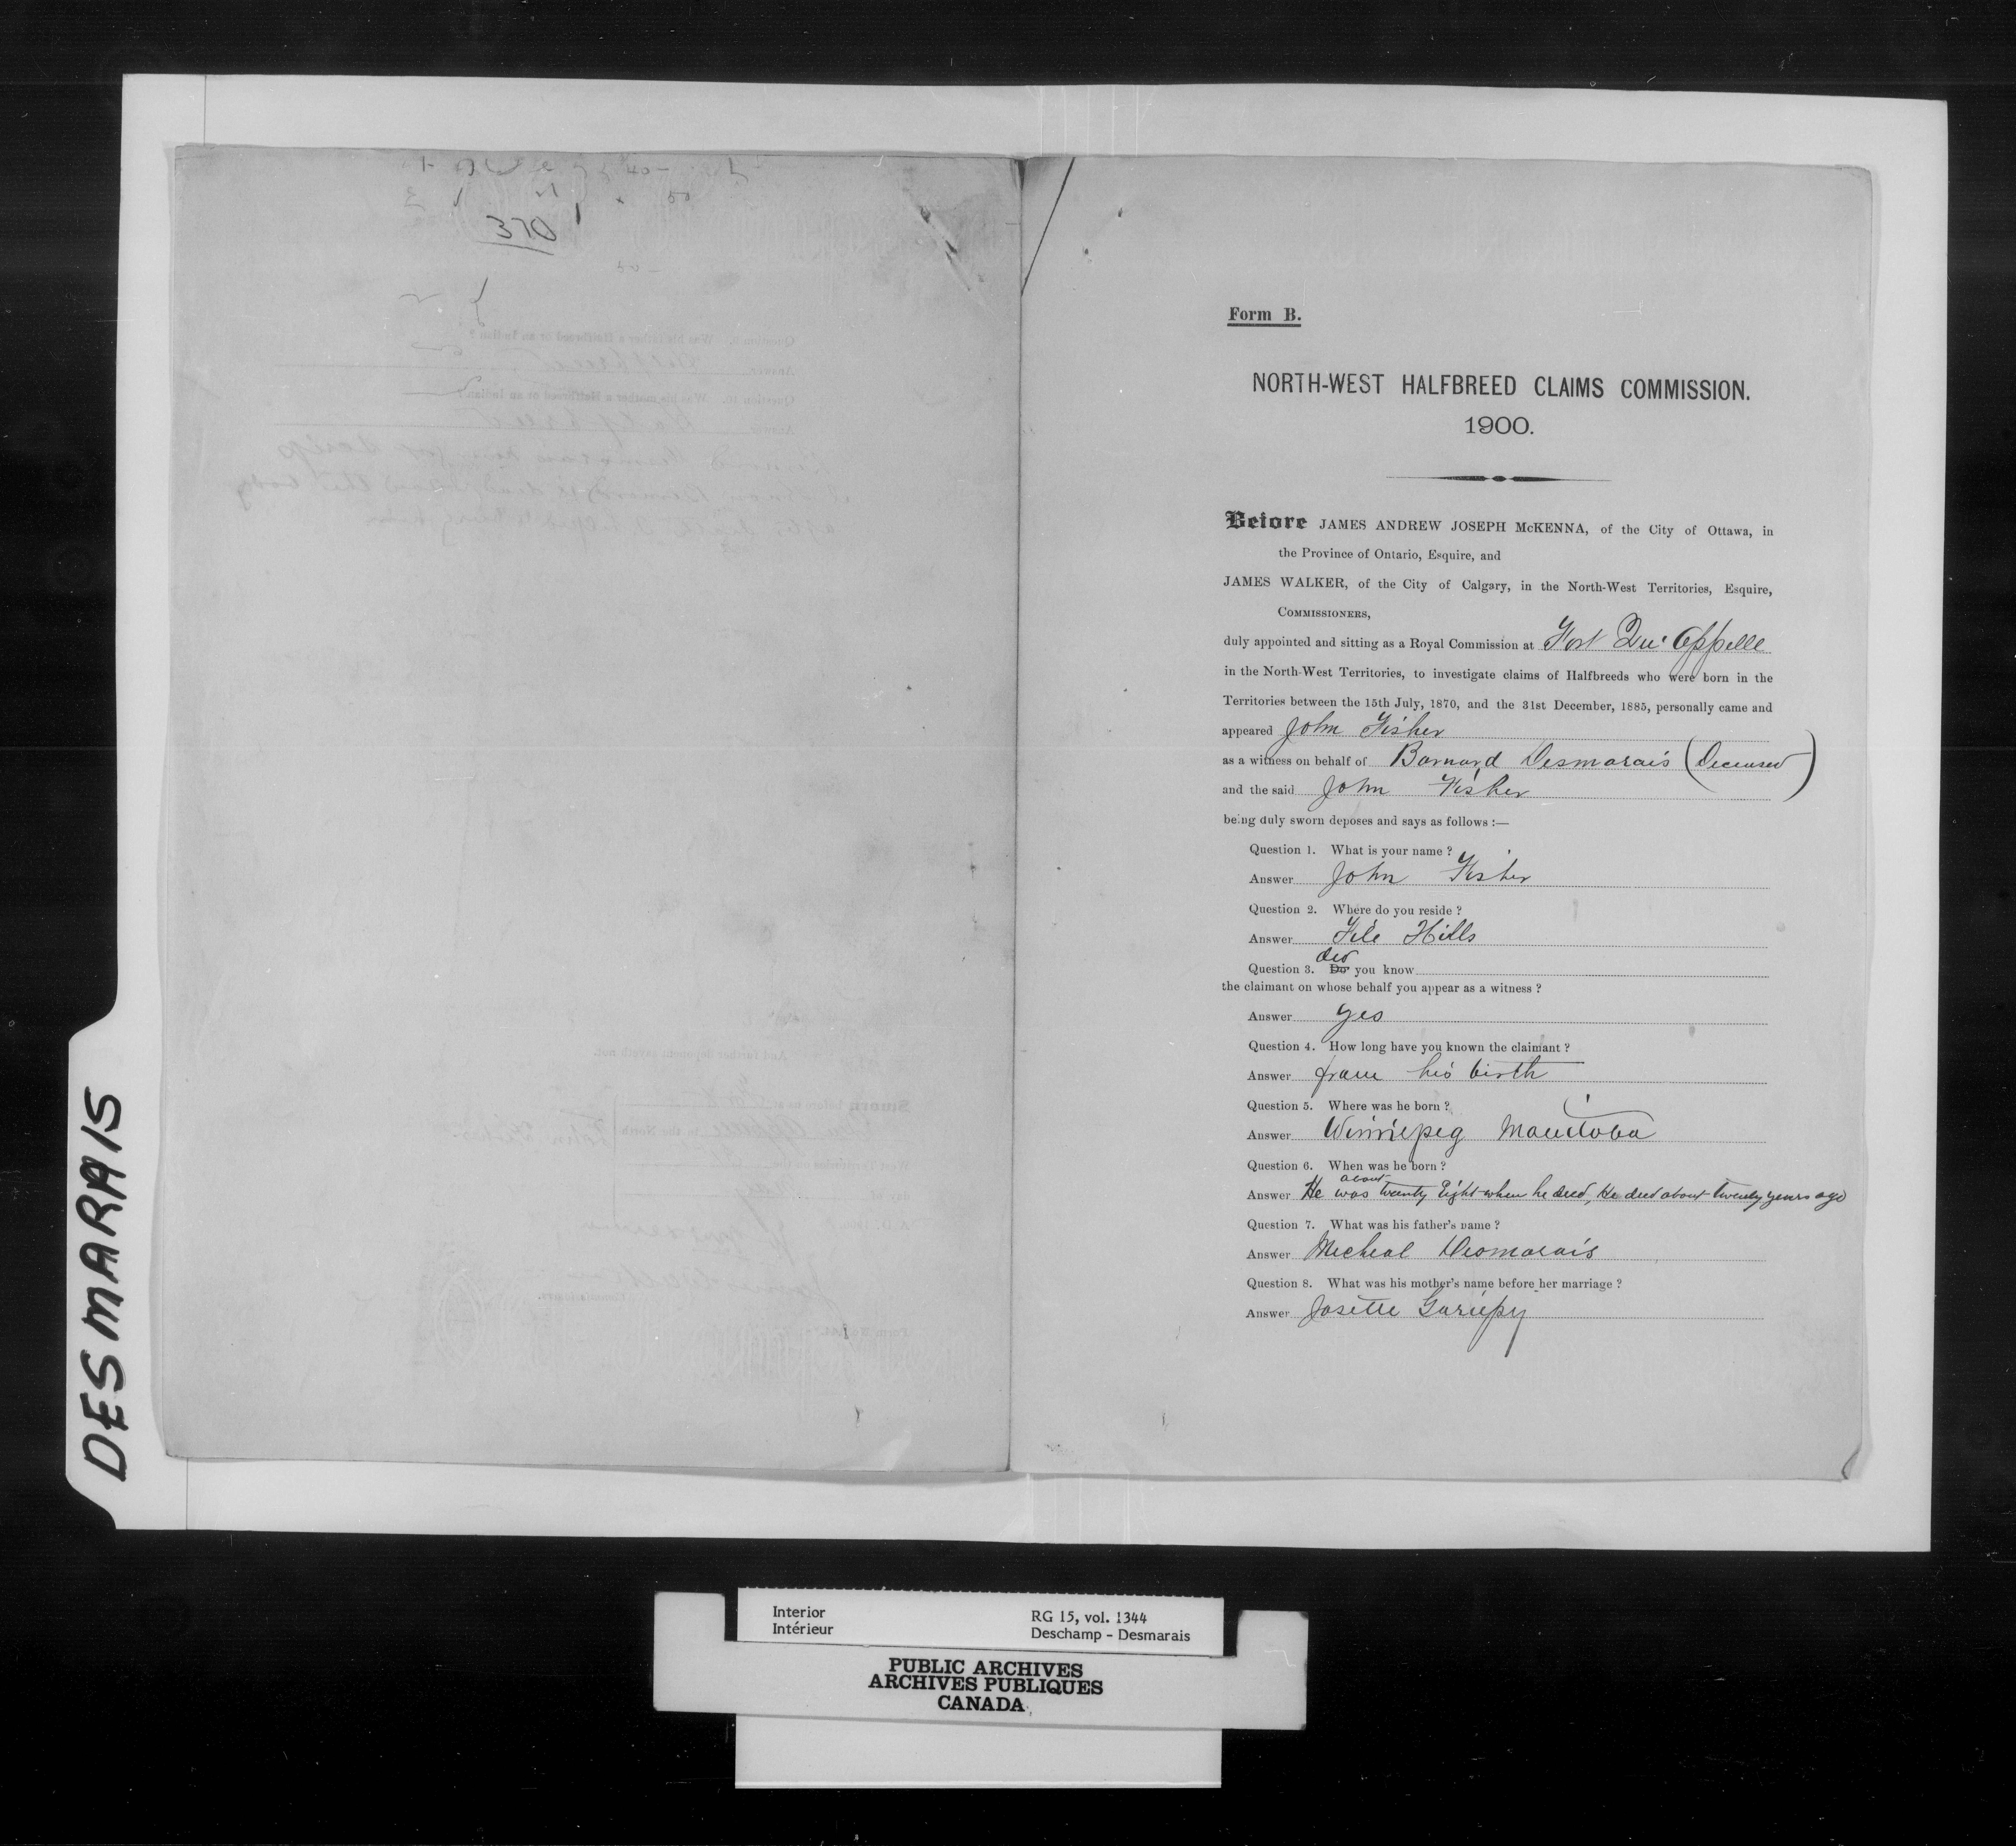 370
Form B.
NORTH-WEST HALFBREED CLAIMS COMMISSION.
1900.
Before JAMES ANDREW JOSEPH McKENNA, of the City of Ottawa, in
the Province of Ontario, Esquire, and
JAMES WALKER, of the City of Calgary, in the North-West Territories, Esquire,
COMMISSIONERS,
duly appointed and sitting as a Royal Commission at Fort Qu'Appelle
in the North-West Territories, to investigate claims of Halfbreeds who were born in the
Territories between the 15th July, 1870, and the 31st December, 1885, personally came and
appeared John Fisher
as a witness on behalf of Barnard Desmarais (Deceased)
and the said John Fisher
being duly sworn deposes and says as follows :—
Question 1. What is your name ?
Answer John Fisher
Question 2. Where do you reside ?
Answer File Hills
did
Question 3. Do you know
the claimant on whose behalf you appear as a witness ?
Answer yes
Question 4. How long have you known the claimant ?
Answer from his birth
Question 5. Where was he born ?
Answer Winniepeg Manitoba
Question 6. When was he born ?
about
Answer He was twenty Eight when he died, He died about twenty years ago
Question 7. What was his father's name ?
Answer Micheal Desmarais
Question 8. What was his mother's name before her marriage ?
Answer Josette Gariepy
DESMARAIS
Interior
Intérieur
RG 15, vol. 1344
Deschamp - Desmarais
PUBLIC ARCHIVES
ARCHIVES PUBLIQUES
CANADA